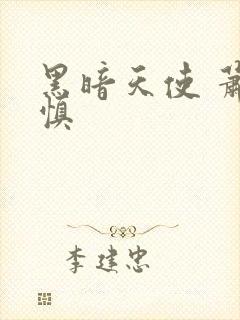 黑暗天使 萧
慎
李建忠